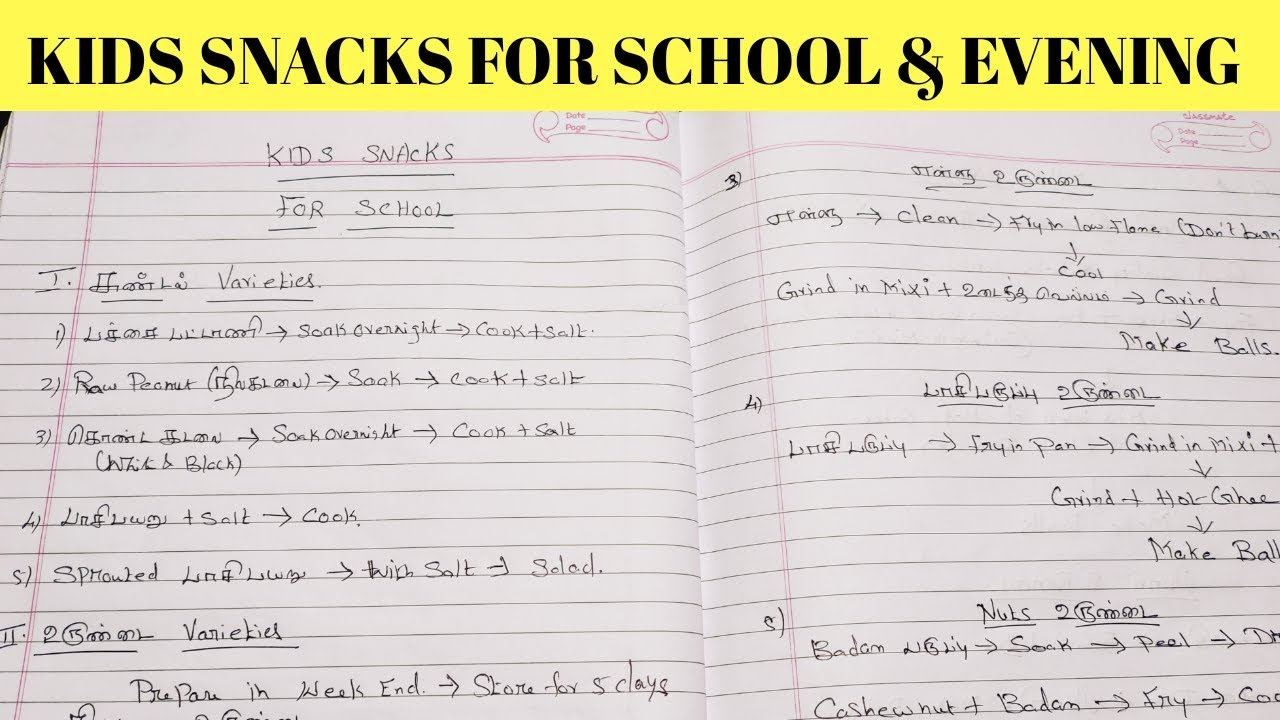 KIDS SNACKS FOR SCHOOL & EVENING
Date
Page
KIDS SNACKS
FOR SCHOOL
I. சுண்டல் Varieties.
1) பச்சை பட்டாணி → Soak overnight → Cook + Salt.
2) Raw Peanut (நிலகடலை) → Soak → Cook + Salt
3) கொண்ட கடலை → Soak overnight → Cook + Salt
(White & Black)
4) பாசிபயறு + Salt → Cook.
5) Sprouted பாசிபயறு → With Salt → Salad.
II. உருண்டை Varieties
Prepare in Week End. → Store for 5 days
classmate
Date
Page
3) எள்ளு உருண்டை
எள்ளு → Clean → Fry in low flame (Don't burn
↓
Cool
Grind in Mixi + உடைத்த வெல்லம் → Grind
↓
Make Balls.
4) பாசிபருப்பு உருண்டை
பாசிபருப்பு → Fry in Pan → Grind in Mixi +
↓
Grind + Hot Ghee
↓
Make Ball
5) Nuts உருண்டை
Badam பருப்பு → Soak → Peel →
Cashewnut + Badam → Fry →